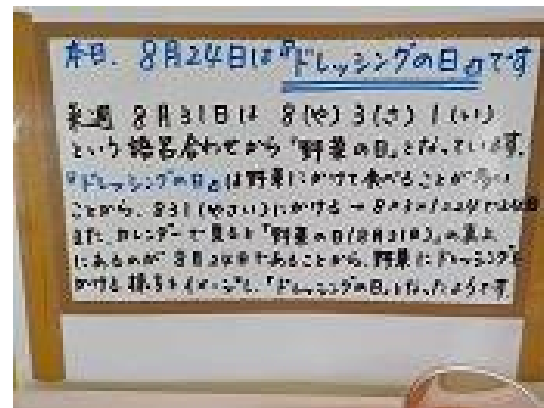 本日、8月24日は『ドレッシングの日』です
来週 8月31日は 8(や)3(さ)1(い)
という語呂合わせから「野菜の日」となっています。
『ドレッシングの日』は野菜にかけて食べることが多い
ことから、831(やさい)にかける→8×3×1=24で24日
また、カレンダーで見ると「野菜の日(8月31日)」の真上
にあるのが8月24日であることから、野菜にドレッシングを
かける様子をイメージし、「ドレッシングの日」となったようです。